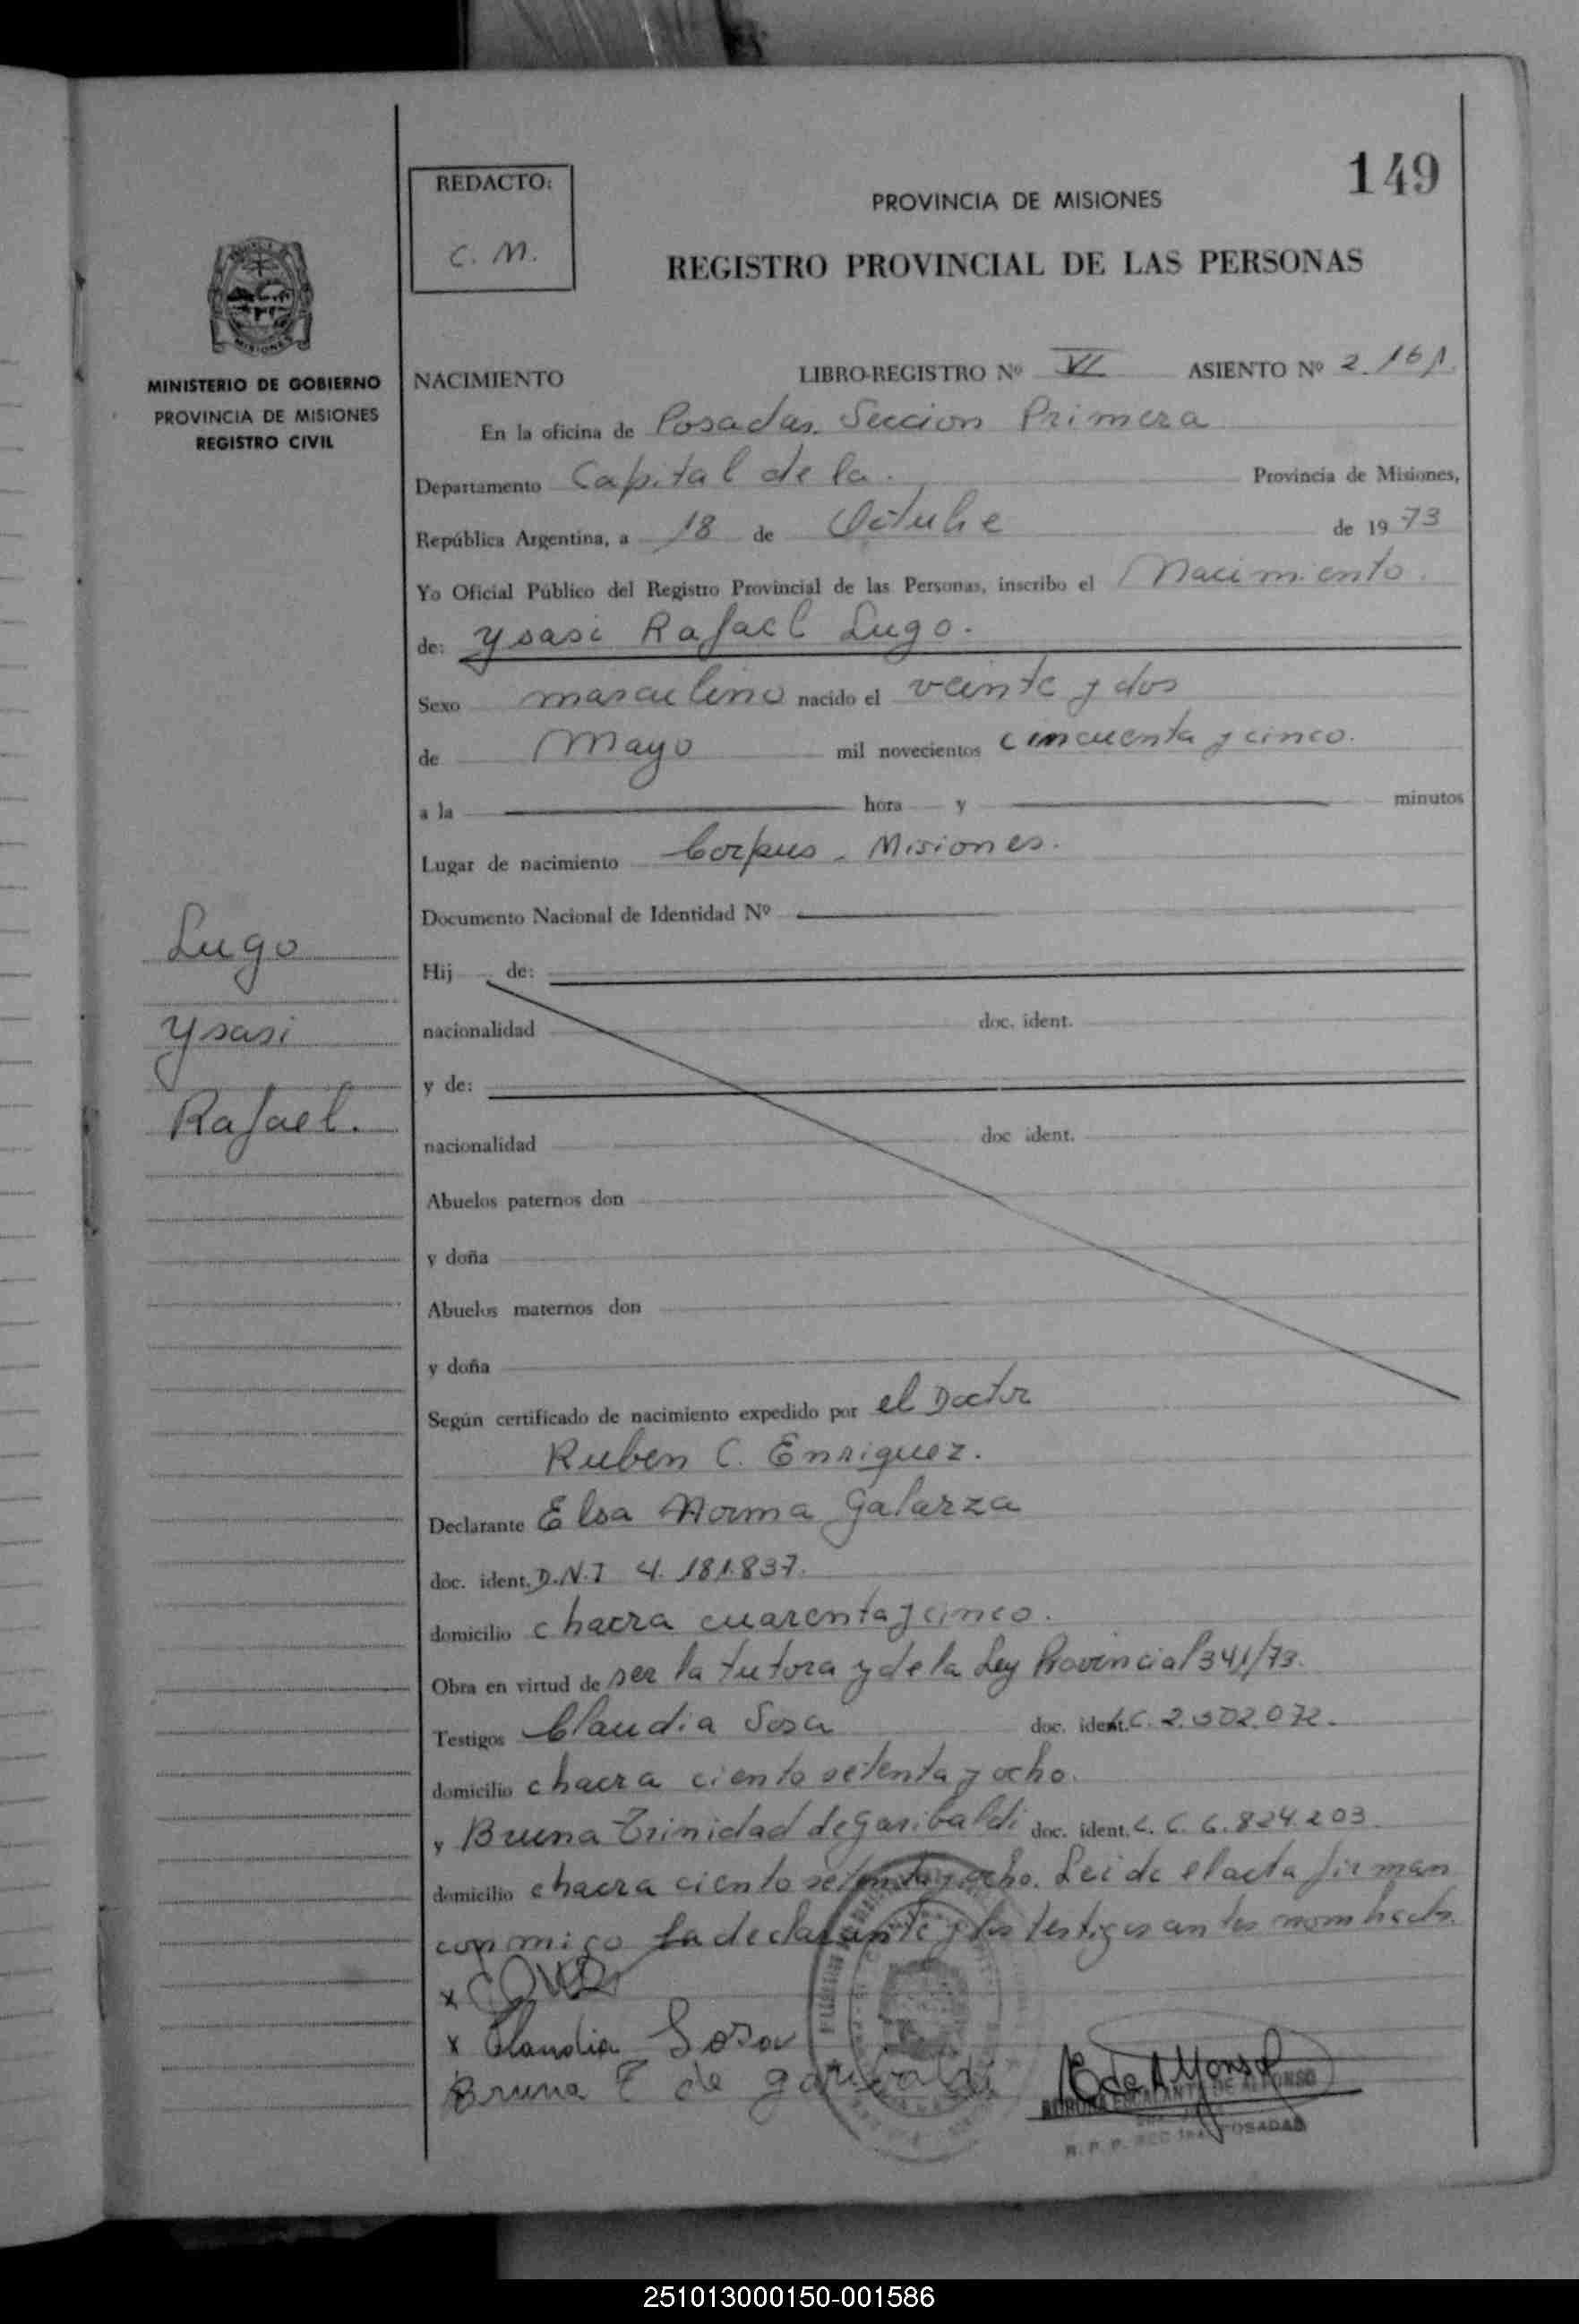 149
REDACTO:
C. M.
PROVINCIA DE MISIONES
REGISTRO PROVINCIAL DE LAS PERSONAS
MISIONES
MINISTERIO DE GOBIERNO
PROVINCIA DE MISIONES
REGISTRO CIVIL
NACIMIENTO LIBRO-REGISTRO Nº VI ASIENTO Nº 2.161
En la oficina de Posadas. Seccion Primera
Departamento Capital de la. Provincia de Misiones,
República Argentina, a 18 de Octubre de 1973
Yo Oficial Público del Registro Provincial de las Personas, inscribo el Nacimiento.
de: Ysasi Rafael Lugo.
Sexo masculino nacido el veinte y dos
de Mayo mil novecientos cincuenta y cinco.
a la hora y minutos
Lugar de nacimiento Corpus - Misiones.
Documento Nacional de Identidad Nº
Lugo
Ysasi
Rafael.
Hij de:
nacionalidad doc. ident.
y de:
nacionalidad doc ident.
Abuelos paternos don
y doña
Abuelos maternos don
y doña
Según certificado de nacimiento expedido por el Doctor
Ruben C. Enriquez.
Declarante Elsa Norma Galarza
doc. ident. D.N.I 4.181.837.
domicilio chacra cuarenta y cinco.
Obra en virtud de ser la tutora y de la Ley Provincial 341/73.
Testigos Claudia Sosa doc. ident. L.C. 2.302.072.
domicilio chacra ciento setenta y ocho.
y Bruna Trinidad de Garibaldi doc. ident. L. C. 6.824.203
domicilio chacra ciento setenta y ocho. Leida el acta firman
conmigo la declarante y los testigos antes nombrados.
x
x Claudia Sosa
Bruna T de garibaldi
E de Alfonso
ESCALANTE DE ALFONSO
R. P. P. SEC 1ra POSADAS
251013000150-001586